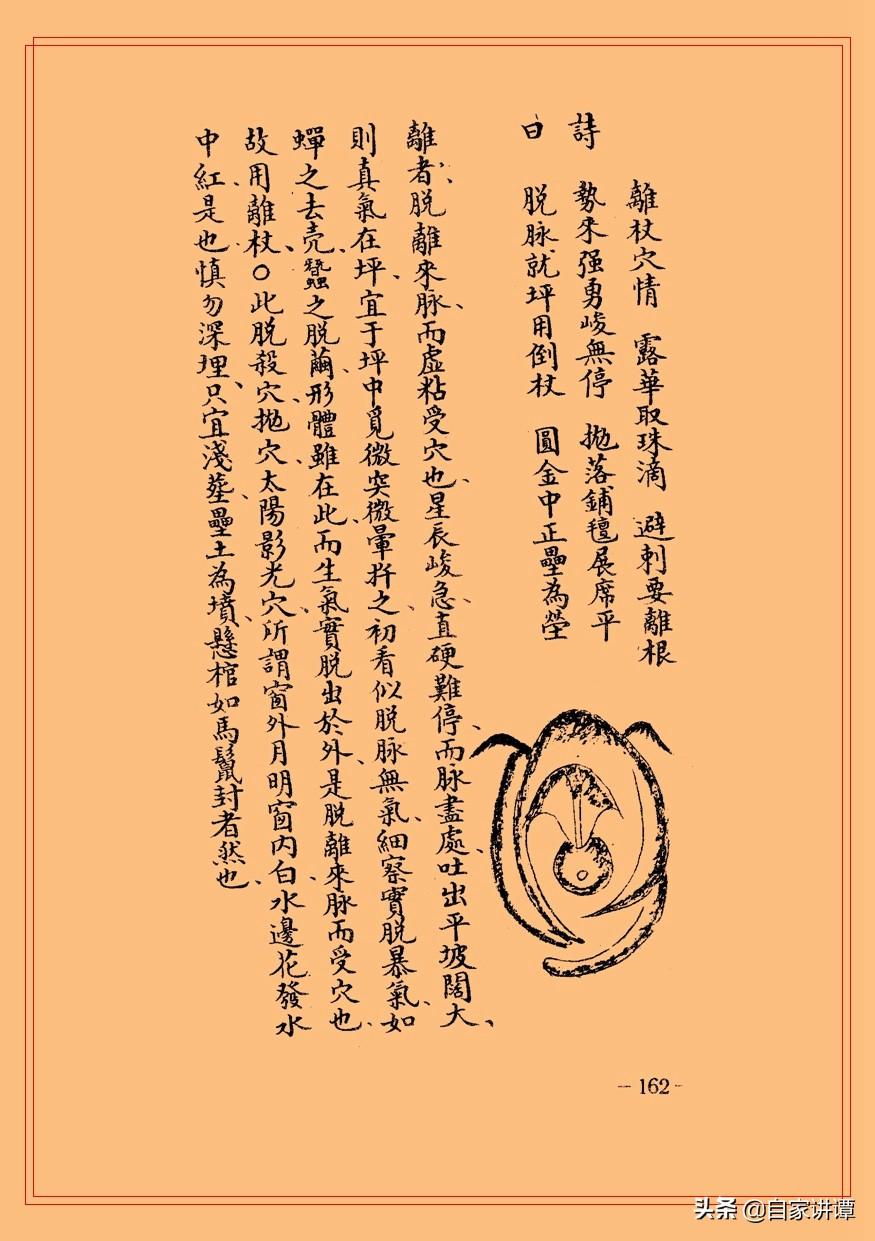 離杖穴情　露華取珠滴　避刺要離根
詩　勢來强勇峻無停　拋落鋪氊展席平
曰　脱脉就坪用倒杖　圓金中正壘為塋
離者、脱離來脉、而虛粘受穴也、星辰峻急、直硬難停、而脉盡處、吐出平坡闊大、
則真氣在坪、宜于坪中覓微突微暈扦之、初看似脱脉無氣、細察實脱暴氣、如
蟬之去壳、蠶之脱繭、形體雖在此、而生氣實脱出於外、是脱離來脉而受穴也、
故用離杖、○此脱殺穴、拋穴、太陽影光穴、所謂窗外月明窗内白、水邊花發水
中紅、是也、慎勿深埋、只宜淺塟、壘土為墳、懸棺如馬鬣封者然也、
-162-
头条 @自家讲谭